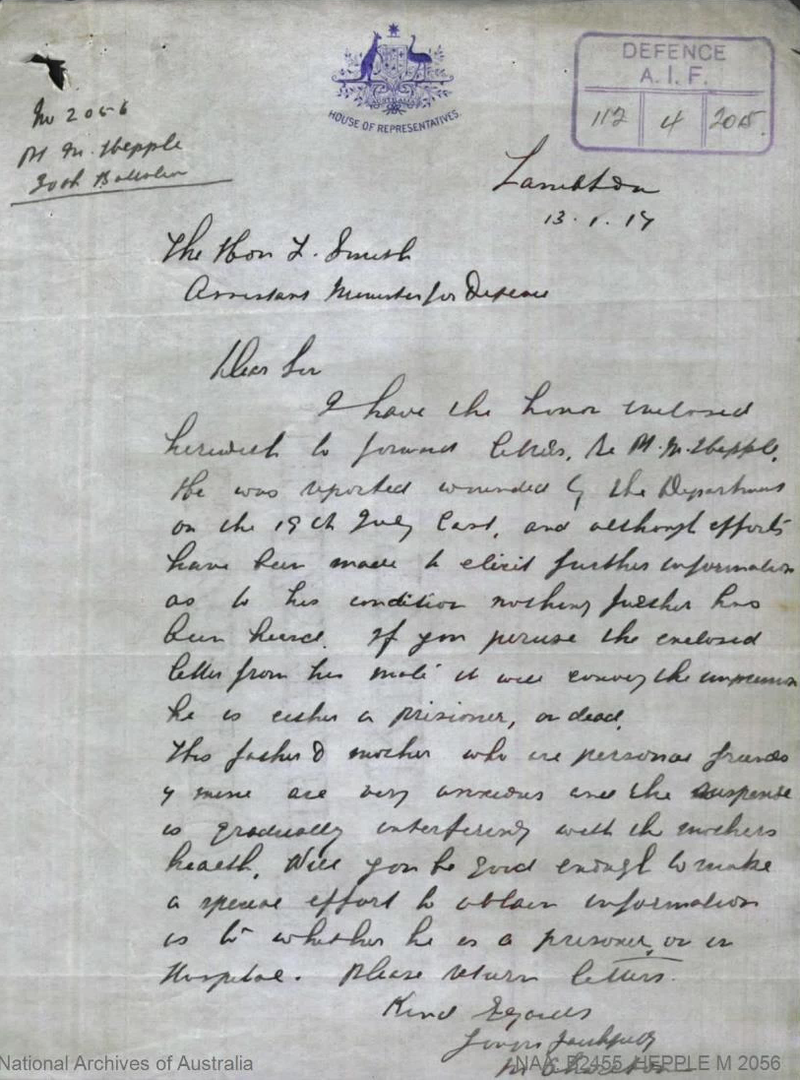 HOUSE OF REPRESENTATIVES.
DEFENCE
A.I.F.
112 4 2015
No 2056
Pt M. Hepple
30th Battalion
Lambton
13.1.17
The Hon L. Smith
Assistant Minister for Defence
Dear Sir
I have the honor enclosed
herewith to forward letters, re Pt. M. Hepple.
He was reported wounded by the Department
on the 19th July last, and although efforts
have been made to elicit further information
as to his condition nothing further has
been heard. If you peruse the enclosed
letter from his mate it will convey the impression
he is either a prisioner, or dead.
His father & mother who are personal friends
of mine are very anxious and the suspense
is gradually interfering with the mothers
health. Will you be good enough to make
a special effort to obtain information
as to whether he is a prisoner, or in
Hospital. Please return letters.
Kind Regards
Yours faithfully
M Charlton
National Archives of Australia
NAA: B2455, HEPPLE M 2056